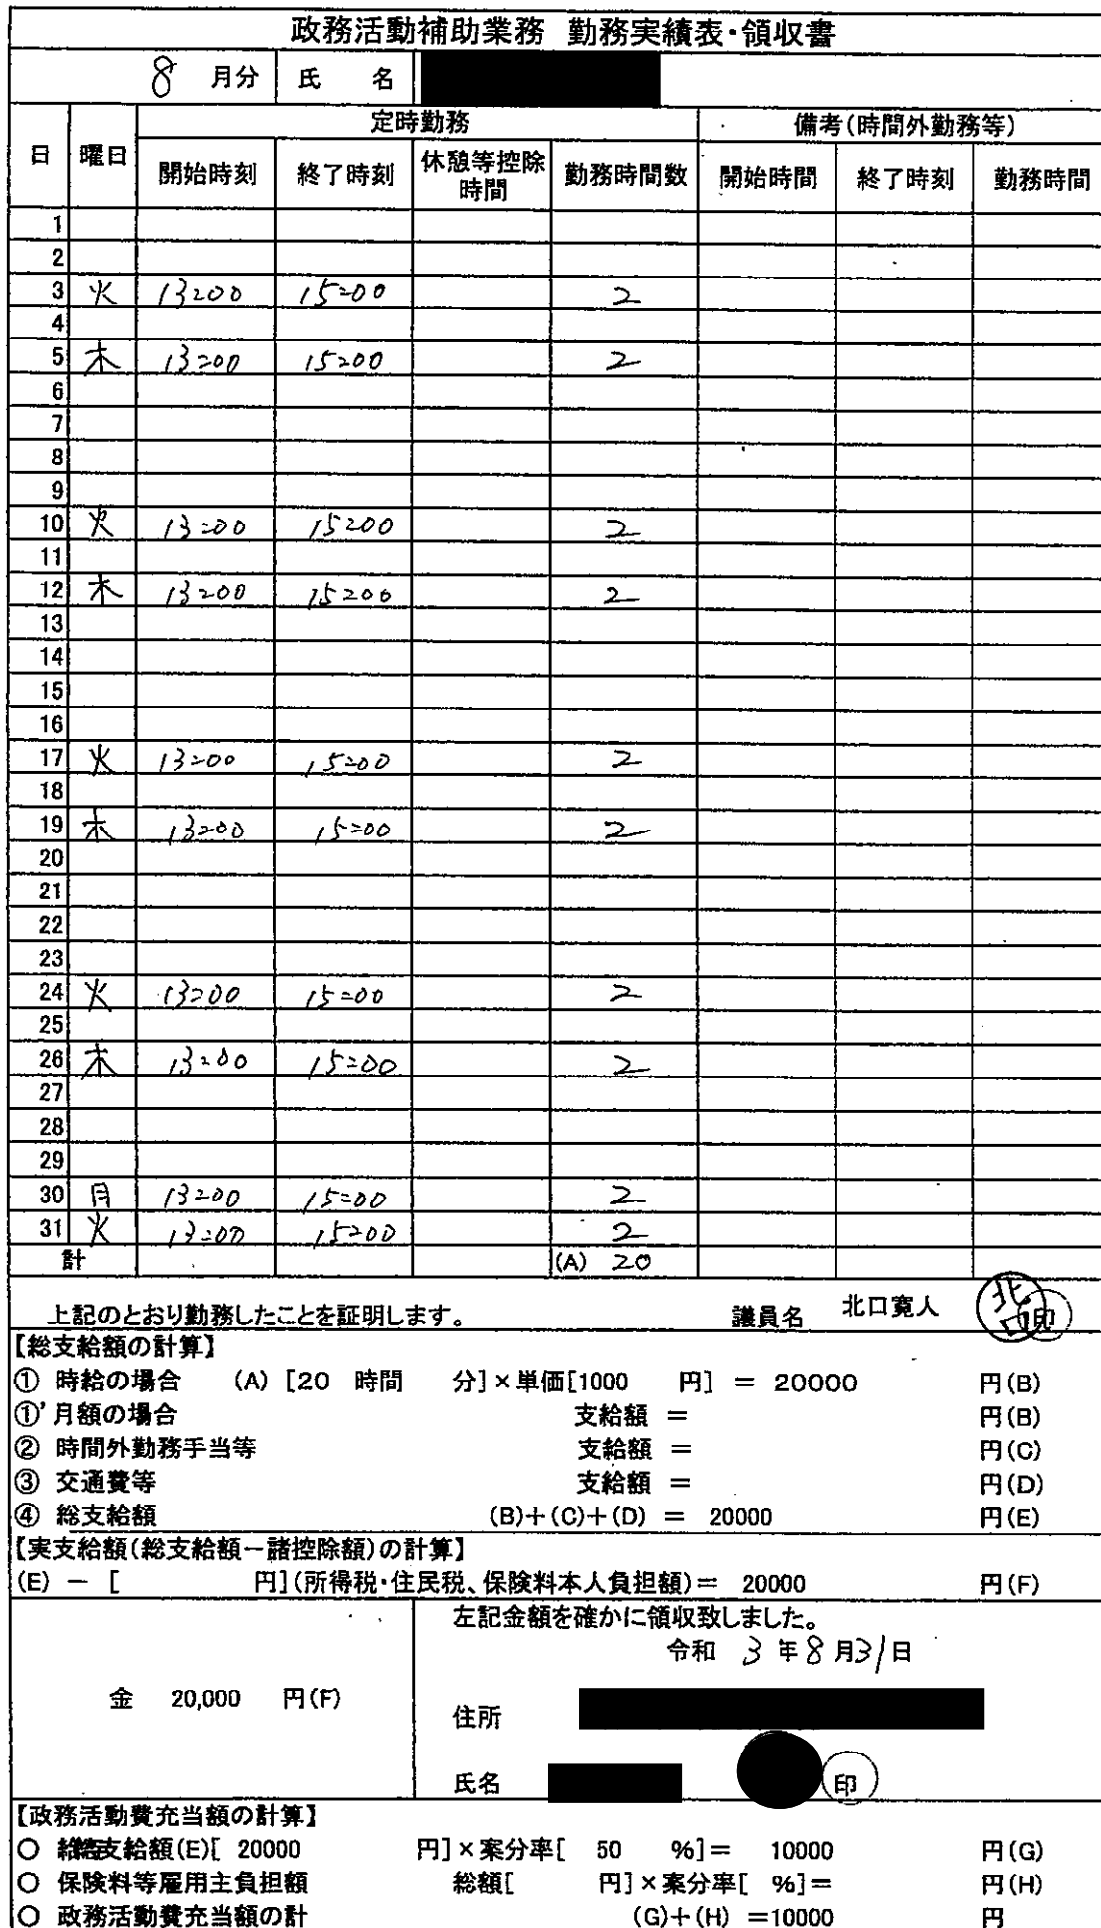 政務活動補助業務 勤務実績表・領収書
8 月分 氏 名
日 曜日 定時勤務 備考(時間外勤務等)
開始時刻 終了時刻 休憩等控除時間 勤務時間数 開始時間 終了時刻 勤務時間
1
2
3 火 13:00 15:00 2
4
5 木 13:00 15:00 2
6
7
8
9
10 火 13:00 15:00 2
11
12 木 13:00 15:00 2
13
14
15
16
17 火 13:00 15:00 2
18
19 木 13:00 15:00 2
20
21
22
23
24 火 13:00 15:00 2
25
26 木 13:00 15:00 2
27
28
29
30 月 13:00 15:00 2
31 火 13:00 15:00 2
計 (A) 20
上記のとおり勤務したことを証明します。 議員名 北口寛人 北口 印
【総支給額の計算】
① 時給の場合 (A) [20 時間 分]×単価[1000 円] = 20000 円(B)
①' 月額の場合 支給額 = 円(B)
② 時間外勤務手当等 支給額 = 円(C)
③ 交通費等 支給額 = 円(D)
④ 総支給額 (B)+(C)+(D) = 20000 円(E)
【実支給額(総支給額-諸控除額)の計算】
(E) - [ 円](所得税・住民税、保険料本人負担額)= 20000 円(F)
左記金額を確かに領収致しました。
令和 3 年 8 月 31 日
金 20,000 円(F)
住所
氏名 印
【政務活動費充当額の計算】
○ 支給額(E)[ 20000 円]×案分率[ 50 %]= 10000 円(G)
○ 保険料等雇用主負担額 総額[ 円]×案分率[ %]= 円(H)
○ 政務活動費充当額の計 (G)+(H) =10000 円